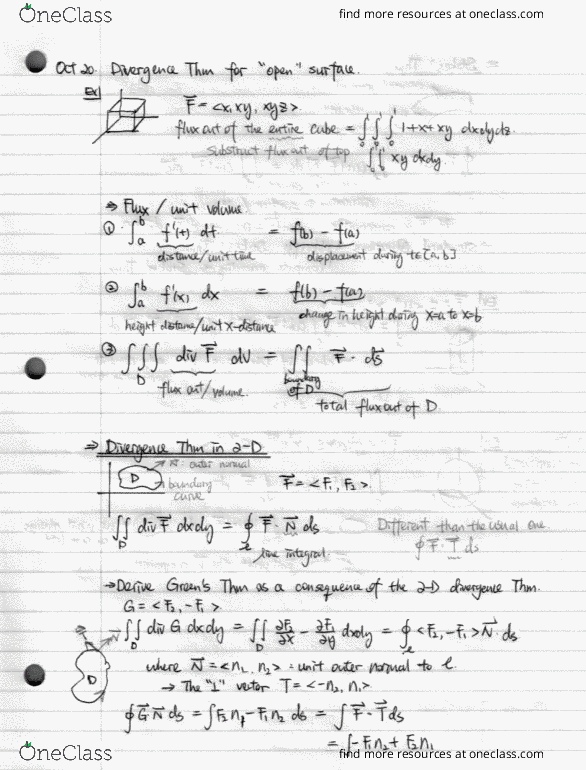 OneClass find more resources at oneclass.com
Oct 20. Divergence Thm for "open" surface.
Ex
F⃗ = <x, xy, xyz>.
flux out of the entire cube = ∫₀¹∫₀¹∫₀¹ 1+x+xy dxdydz.
Substract flux out of top ∫₀¹∫₀¹ xy dxdy.
⇒ Flux / unit volume.
① ∫ₐᵇ f'(t) dt = f(b) - f(a)
distance/unit time displacement during t∈[a, b]
② ∫ₐᵇ f'(x) dx = f(b) - f(a)
height distance/unit x-distance change in height during x=a to x=b
③ ∫∫∫ div F⃗ dV = ∫∫ F⃗ · ds⃗
D boundary of D
flux out/volume. total flux out of D
⇒ Divergence Thm in 2-D
N: outer normal
D boundary curve F⃗ = <F₁, F₂>.
∫∫ div F⃗ dxdy = ∮ F⃗ · N⃗ ds Different than the usual one
D line integral. ∮ F⃗ · T⃗ ds
→Derive Green's Thm as a consequence of the 2-D divergence Thm.
G = <F₂, -F₁>
N⃗ ∫∫ div G dxdy = ∫∫ ∂F₂/∂x - ∂F₁/∂y dxdy = ∮ <F₂, -F₁> N⃗ ds
D where N⃗ = <n₁, n₂> = unit outer normal to ℓ.
→ The "⊥" vector T = <-n₂, n₁>
∮ G⃗ N⃗ ds = ∫ F₂ n₁ - F₁ n₂ ds = ∫ F⃗ · T⃗ ds
= ∫ -F₁n₂ + F₂n₁
OneClass find more resources at oneclass.com